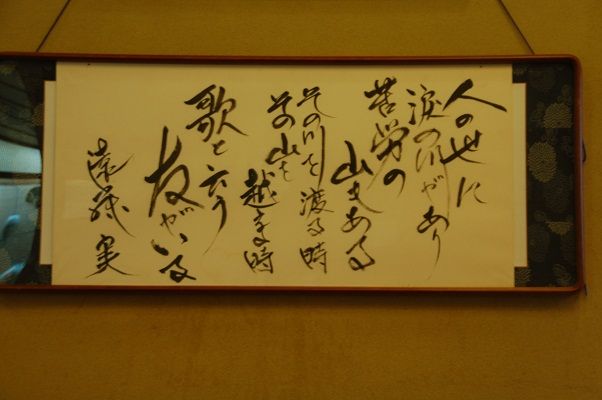 人の世に
涙の川があり
苦労の
山もある
その川を渡る時
その山を
越える時
歌と云う
友がいる
遠藤実